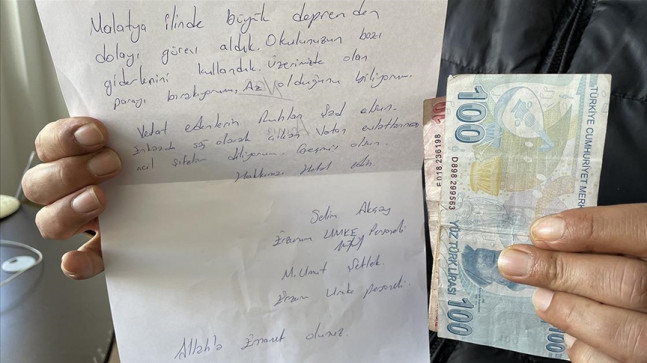 Malatya ilinde büyük depremden
dolayı görev aldık. Okulunuzun bazı
giderlerini kullandık. Üzerimizde olan
parayı bırakıyorum. Az olduğunu biliyorum.
Vefat edenlerin Ruhları Şad olsun.
olarak Vatan evlatlarına
acil şifalar diliyorum. Geçmiş olsun.
Hakkınızı Helal edin.
Selim Akçay
Erzurum UMKE Personeli
M. Umut
Erzurum Umke Personeli
Allah'a Emanet olunuz
100
TÜRKİYE CUMHURİYET MERK
D898 299563
F018 236198
YÜZ TÜRK LİRASI
100